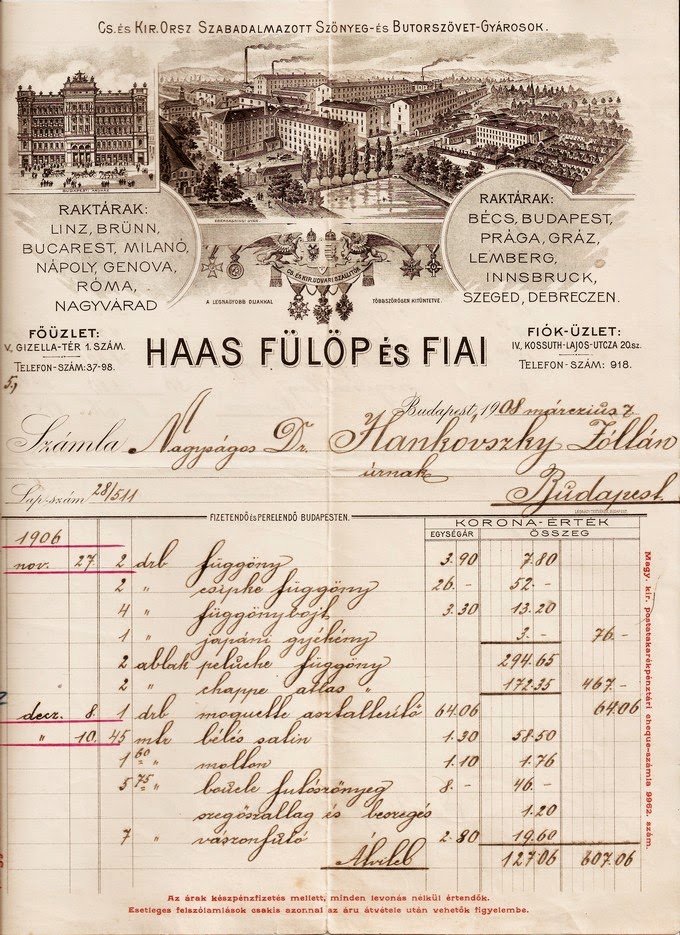 Cs. és Kir. Orsz Szabadalmazott Szönyeg-és Butorszövet-Gyárosok.
BUDAPESTI ÁRUHÁZ
EBERGASSINGI GYÁR.
RAKTÁRAK:
LINZ, BRÜNN,
BUCAREST, MILANÓ,
NÁPOLY, GENOVA,
RÓMA,
NAGYVÁRAD
CS. ÉS KIR. UDVARI SZÁLLITÓK
A LEGNAGYOBB DIJAKKAL
TÖBBSZÖRÖSEN KITÜNTETVE.
RAKTÁRAK:
BÉCS, BUDAPEST,
PRÁGA, GRÁZ,
LEMBERG,
INNSBRUCK,
SZEGED, DEBRECZEN.
FŐÜZLET:
V. GIZELLA-TÉR 1. SZÁM.
TELEFON-SZÁM: 37-98.
HAAS FÜLÖP ÉS FIAI
FIÓK-ÜZLET:
IV. KOSSUTH-LAJOS-UTCZA 20 sz.
TELEFON-SZÁM: 918.
5,
Budapest, 1908 márczius 7
Számla Nagyságos Dr. Hankóvszky Zóltán
úrnak
Lap-szám 28/511 Budapest
FIZETENDŐ és PERELENDŐ BUDAPESTEN.
KORONA-ÉRTÉK
EGYSÉGÁR ÖSSZEG
1906
nov. 27. 2 drb függöny 3.90 7.80
2 " csipke függöny 26.- 52.-
4 " függönybojt 3.30 13.20
1 " japáni gyékény 3.- 76.-
2 ablak peluche függöny 294.65
" 2 " chappe atlas " 172.35 467.-
decz. 8. 1 drb moquette asztalterítő 64.06 64.06
" 10. 45 mtr bélés satin 1.30 58.50
1 60 " molton 1.10 1.76
5 75 " boucle futószőnyeg 8.- 46.-
szegőszallag és beszegés 1.20
7 " vászonfutó 2.80 19.60
Átvitel 127.06 807.06
Magy. kir. postatakarékpénztári cheque-számla 9962. szám.
Az árak készpénzfizetés mellett, minden levonás nélkül értendők.
Esetleges felszólamlások csakis azonnal az áru átvétele után vehetők figyelembe.